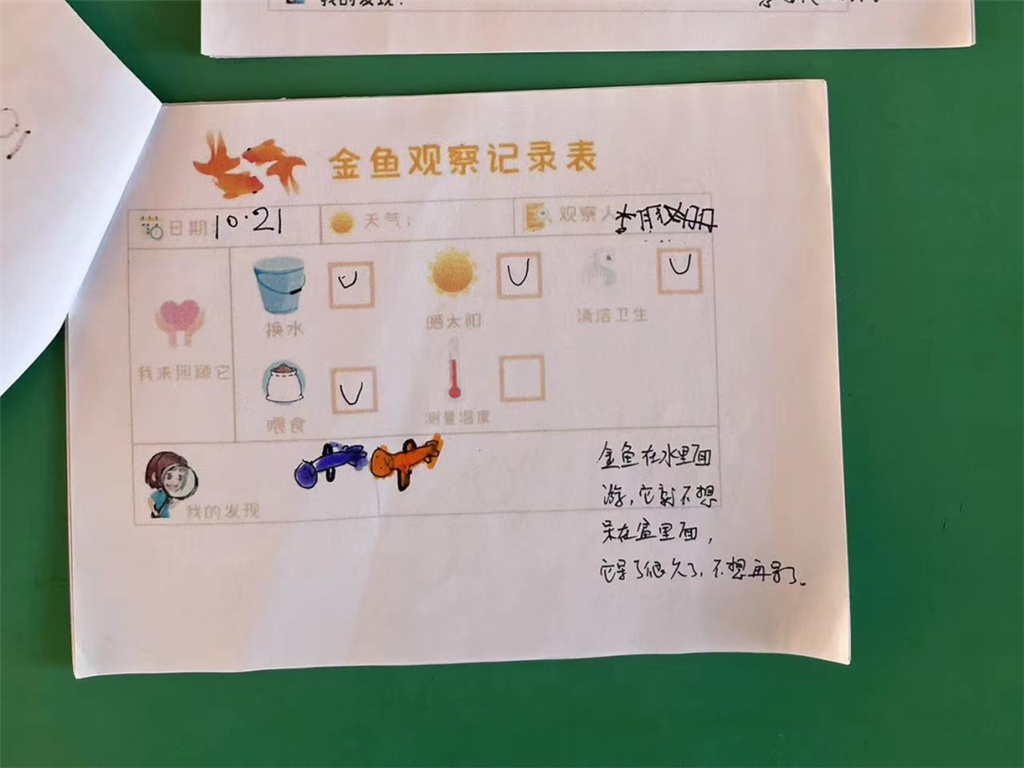 我的发现:
金鱼观察记录表
日期 10.21
天气:
观察人
换水
晒太阳
清洁卫生
我来照顾它
喂食
测量温度
我的发现
金鱼在水里面
游,它就不想
呆在窝里面,
它呆了很久了,不想再呆了。